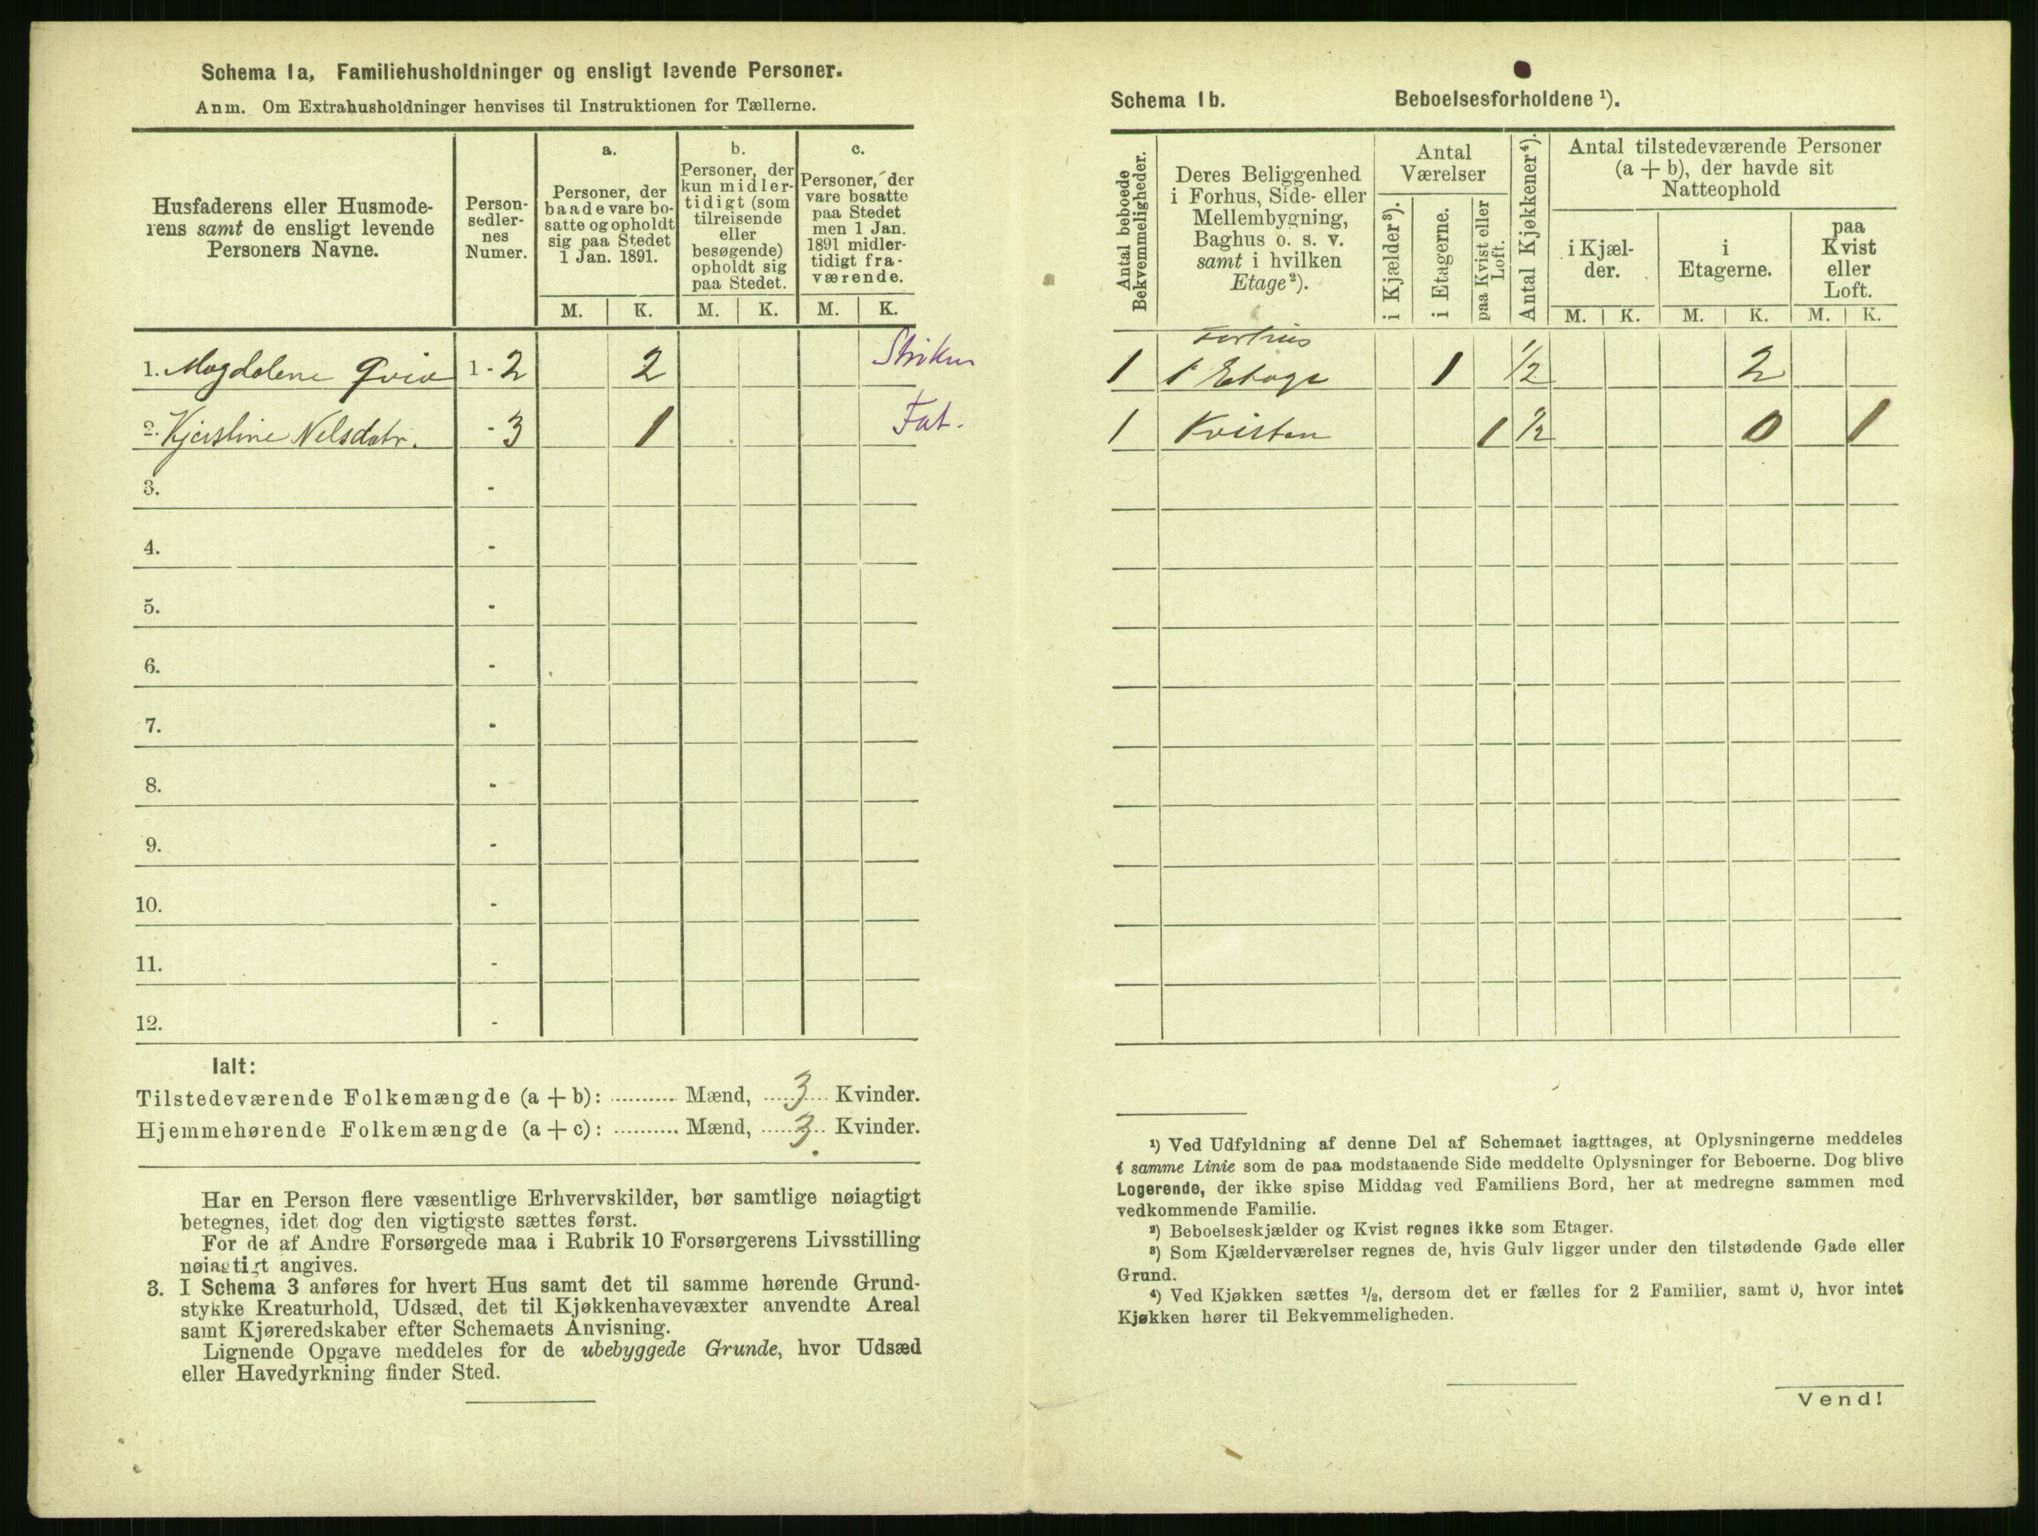 Schema 1a, Familiehusholdninger og ensligt levende Personer.
Anm. Om Extrahusholdninger henvises til Instruktionen for Tællerne.
Husfaderens eller Husmode-
rens samt de ensligt levende
Personers Navne.
Person-
sedler-
nes
Numer.
a.
Personer, der
baade vare bo-
satte og opholdt
sig paa Stedet
1 Jan. 1891.
b.
Personer, der
kun midler-
tidigt (som
tilreisende
eller
besøgende)
opholdt sig
paa Stedet.
c.
Personer, der
vare bosatte
paa Stedet
men 1 Jan.
1891 midler-
tidigt fra-
værende.
M. K. M. K. M. K.
1. Magdalene Qvie 1 - 2 2
2. Kjerstine Nelsdatr. - 3 1 Fat.
3. -
4. -
5. -
6. -
7. -
8. -
9. -
10. -
11. -
12. -
Ialt:
Tilstedeværende Folkemængde (a + b): .......... Mænd, 3 Kvinder.
Hjemmehørende Folkemængde (a + c): .......... Mænd, 3 Kvinder.
Har en Person flere væsentlige Erhvervskilder, bør samtlige nøiagtigt
betegnes, idet dog den vigtigste sættes først.
For de af Andre Forsørgede maa i Rubrik 10 Forsørgerens Livsstilling
nøiagtigt angives.
3. I Schema 3 anføres for hvert Hus samt det til samme hørende Grund-
stykke Kreaturhold, Udsæd, det til Kjøkkenhavevæxter anvendte Areal
samt Kjøreredskaber efter Schemaets Anvisning.
Lignende Opgave meddeles for de ubebyggede Grunde, hvor Udsæd
eller Havedyrkning finder Sted.
Schema 1b. Beboelsesforholdene ¹).
Antal beboede
Bekvemmeligheder.
Deres Beliggenhed
i Forhus, Side- eller
Mellembygning,
Baghus o. s. v.
samt i hvilken
Etage²).
Antal
Værelser
i Kjælder³).
i Etagerne.
paa Kvist eller
Loft.
Antal Kjøkkener⁴).
Antal tilstedeværende Personer
(a + b), der havde sit
Natteophold
i Kjæl-
der.
i
Etagerne.
paa
Kvist
eller
Loft.
M. K. M. K. M. K.
Forhus
1 1 Etage 1 1/2 2
1 Kvisten 1 1/2 0 1
¹) Ved Udfyldning af denne Del af Schemaet iagttages, at Oplysningerne meddeles
i samme Linie som de paa modstaaende Side meddelte Oplysninger for Beboerne. Dog blive
Logerende, der ikke spise Middag ved Familiens Bord, her at medregne sammen med
vedkommende Familie.
²) Beboelseskjælder og Kvist regnes ikke som Etager.
³) Som Kjælderværelser regnes de, hvis Gulv ligger under den tilstødende Gade eller
Grund.
⁴) Ved Kjøkken sættes ½, dersom det er fælles for 2 Familier, samt 0, hvor intet
Kjøkken hører til Bekvemmeligheden.
Vend!